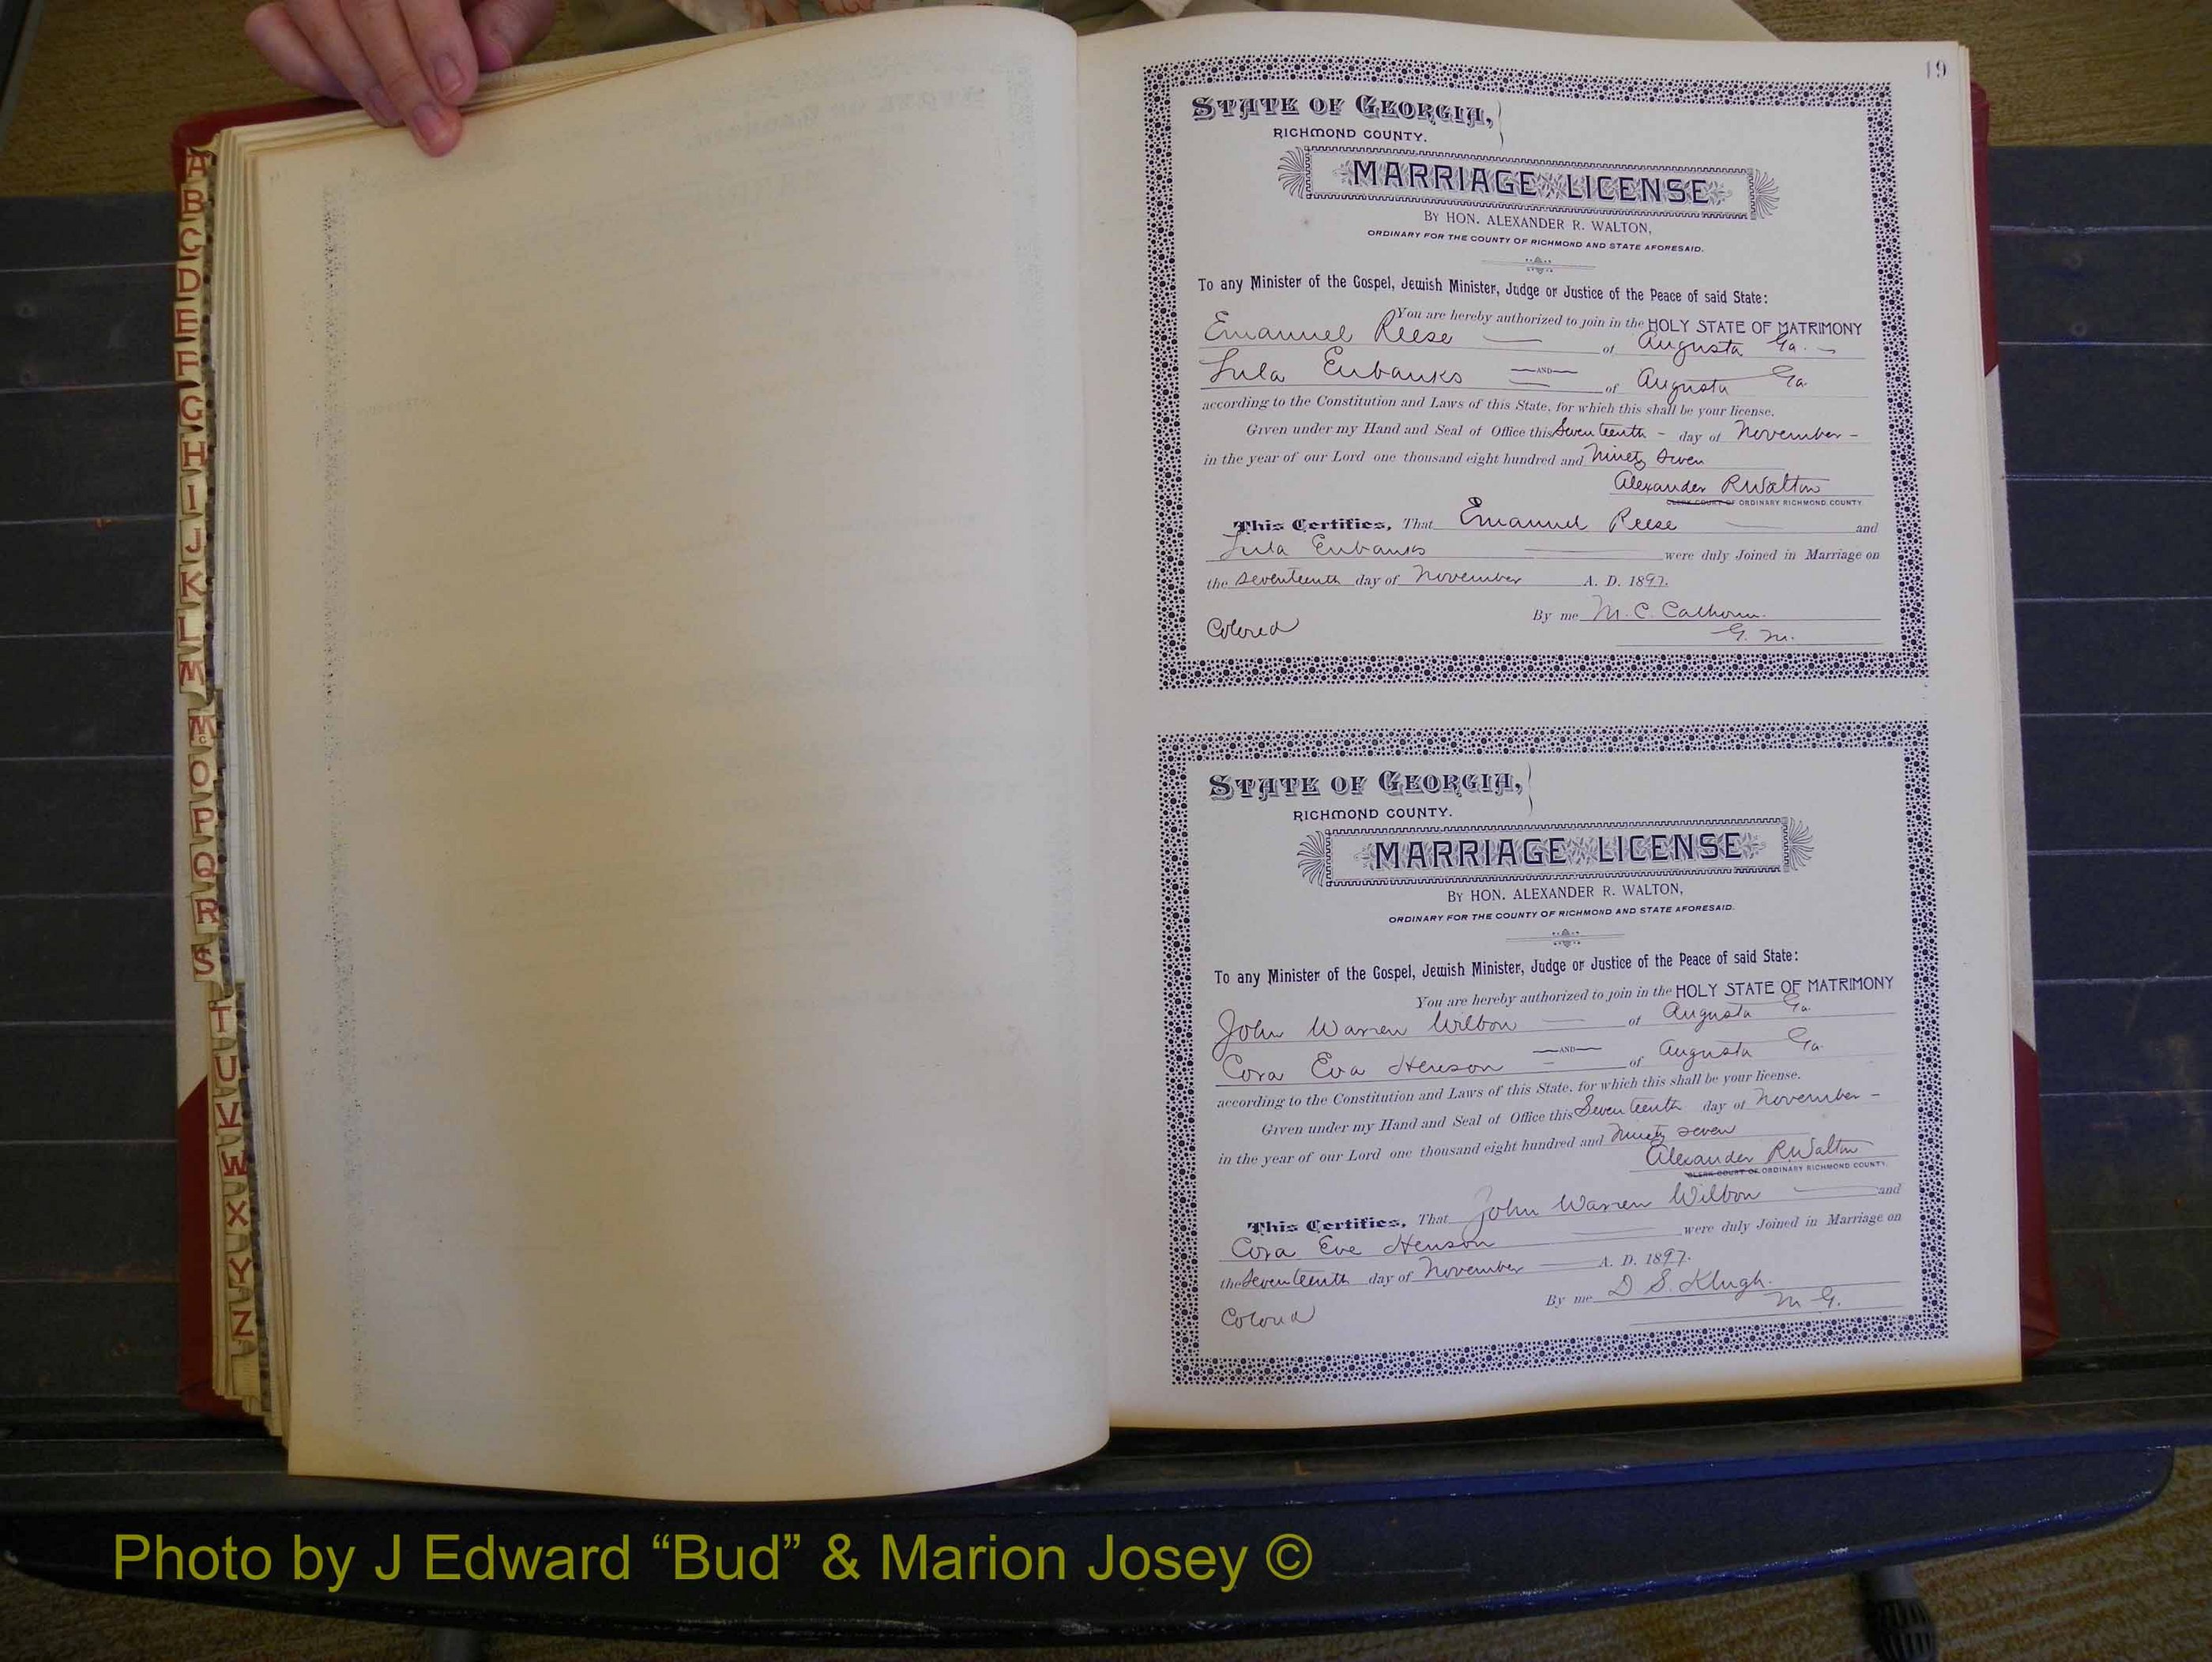 A
B
C
D
E
F
G
H
I
J
K
L
M
Mc
O
P
Q
R
S
T
U
V
W
X
Y
Z
19
STATE OF GEORGIA,
RICHMOND COUNTY.
MARRIAGE LICENSE
BY HON. ALEXANDER R. WALTON,
ORDINARY FOR THE COUNTY OF RICHMOND AND STATE AFORESAID.
To any Minister of the Gospel, Jewish Minister, Judge or Justice of the Peace of said State:
You are hereby authorized to join in the HOLY STATE OF MATRIMONY
Emanuel Reese of Augusta Ga.
AND
Lula Eubanks of Augusta Ga
according to the Constitution and Laws of this State, for which this shall be your license.
Given under my Hand and Seal of Office this Seventeenth - day of November -
in the year of our Lord one thousand eight hundred and Ninety Seven
Alexander R Walton
CLERK COURT OF ORDINARY RICHMOND COUNTY
This Certifies, That Emanuel Reese and
Lula Eubanks were duly Joined in Marriage on
the Seventeenth day of November A. D. 1897.
Colored By me M. C. Calhoun.
G. M.
STATE OF GEORGIA,
RICHMOND COUNTY.
MARRIAGE LICENSE
BY HON. ALEXANDER R. WALTON,
ORDINARY FOR THE COUNTY OF RICHMOND AND STATE AFORESAID.
To any Minister of the Gospel, Jewish Minister, Judge or Justice of the Peace of said State:
You are hereby authorized to join in the HOLY STATE OF MATRIMONY
John Warren Wilbon of Augusta Ga.
AND
Cora Eva Henson of Augusta Ga.
according to the Constitution and Laws of this State, for which this shall be your license.
Given under my Hand and Seal of Office this Seventeenth day of November -
in the year of our Lord one thousand eight hundred and Ninety seven
Alexander R. Walton
CLERK COURT OF ORDINARY RICHMOND COUNTY.
This Certifies, That John Warren Wilbon and
Cora Eve Henson were duly Joined in Marriage on
the Seventeenth day of November A. D. 1897.
Colored By me D S. Klugh.
M G.
Photo by J Edward “Bud” & Marion Josey ©